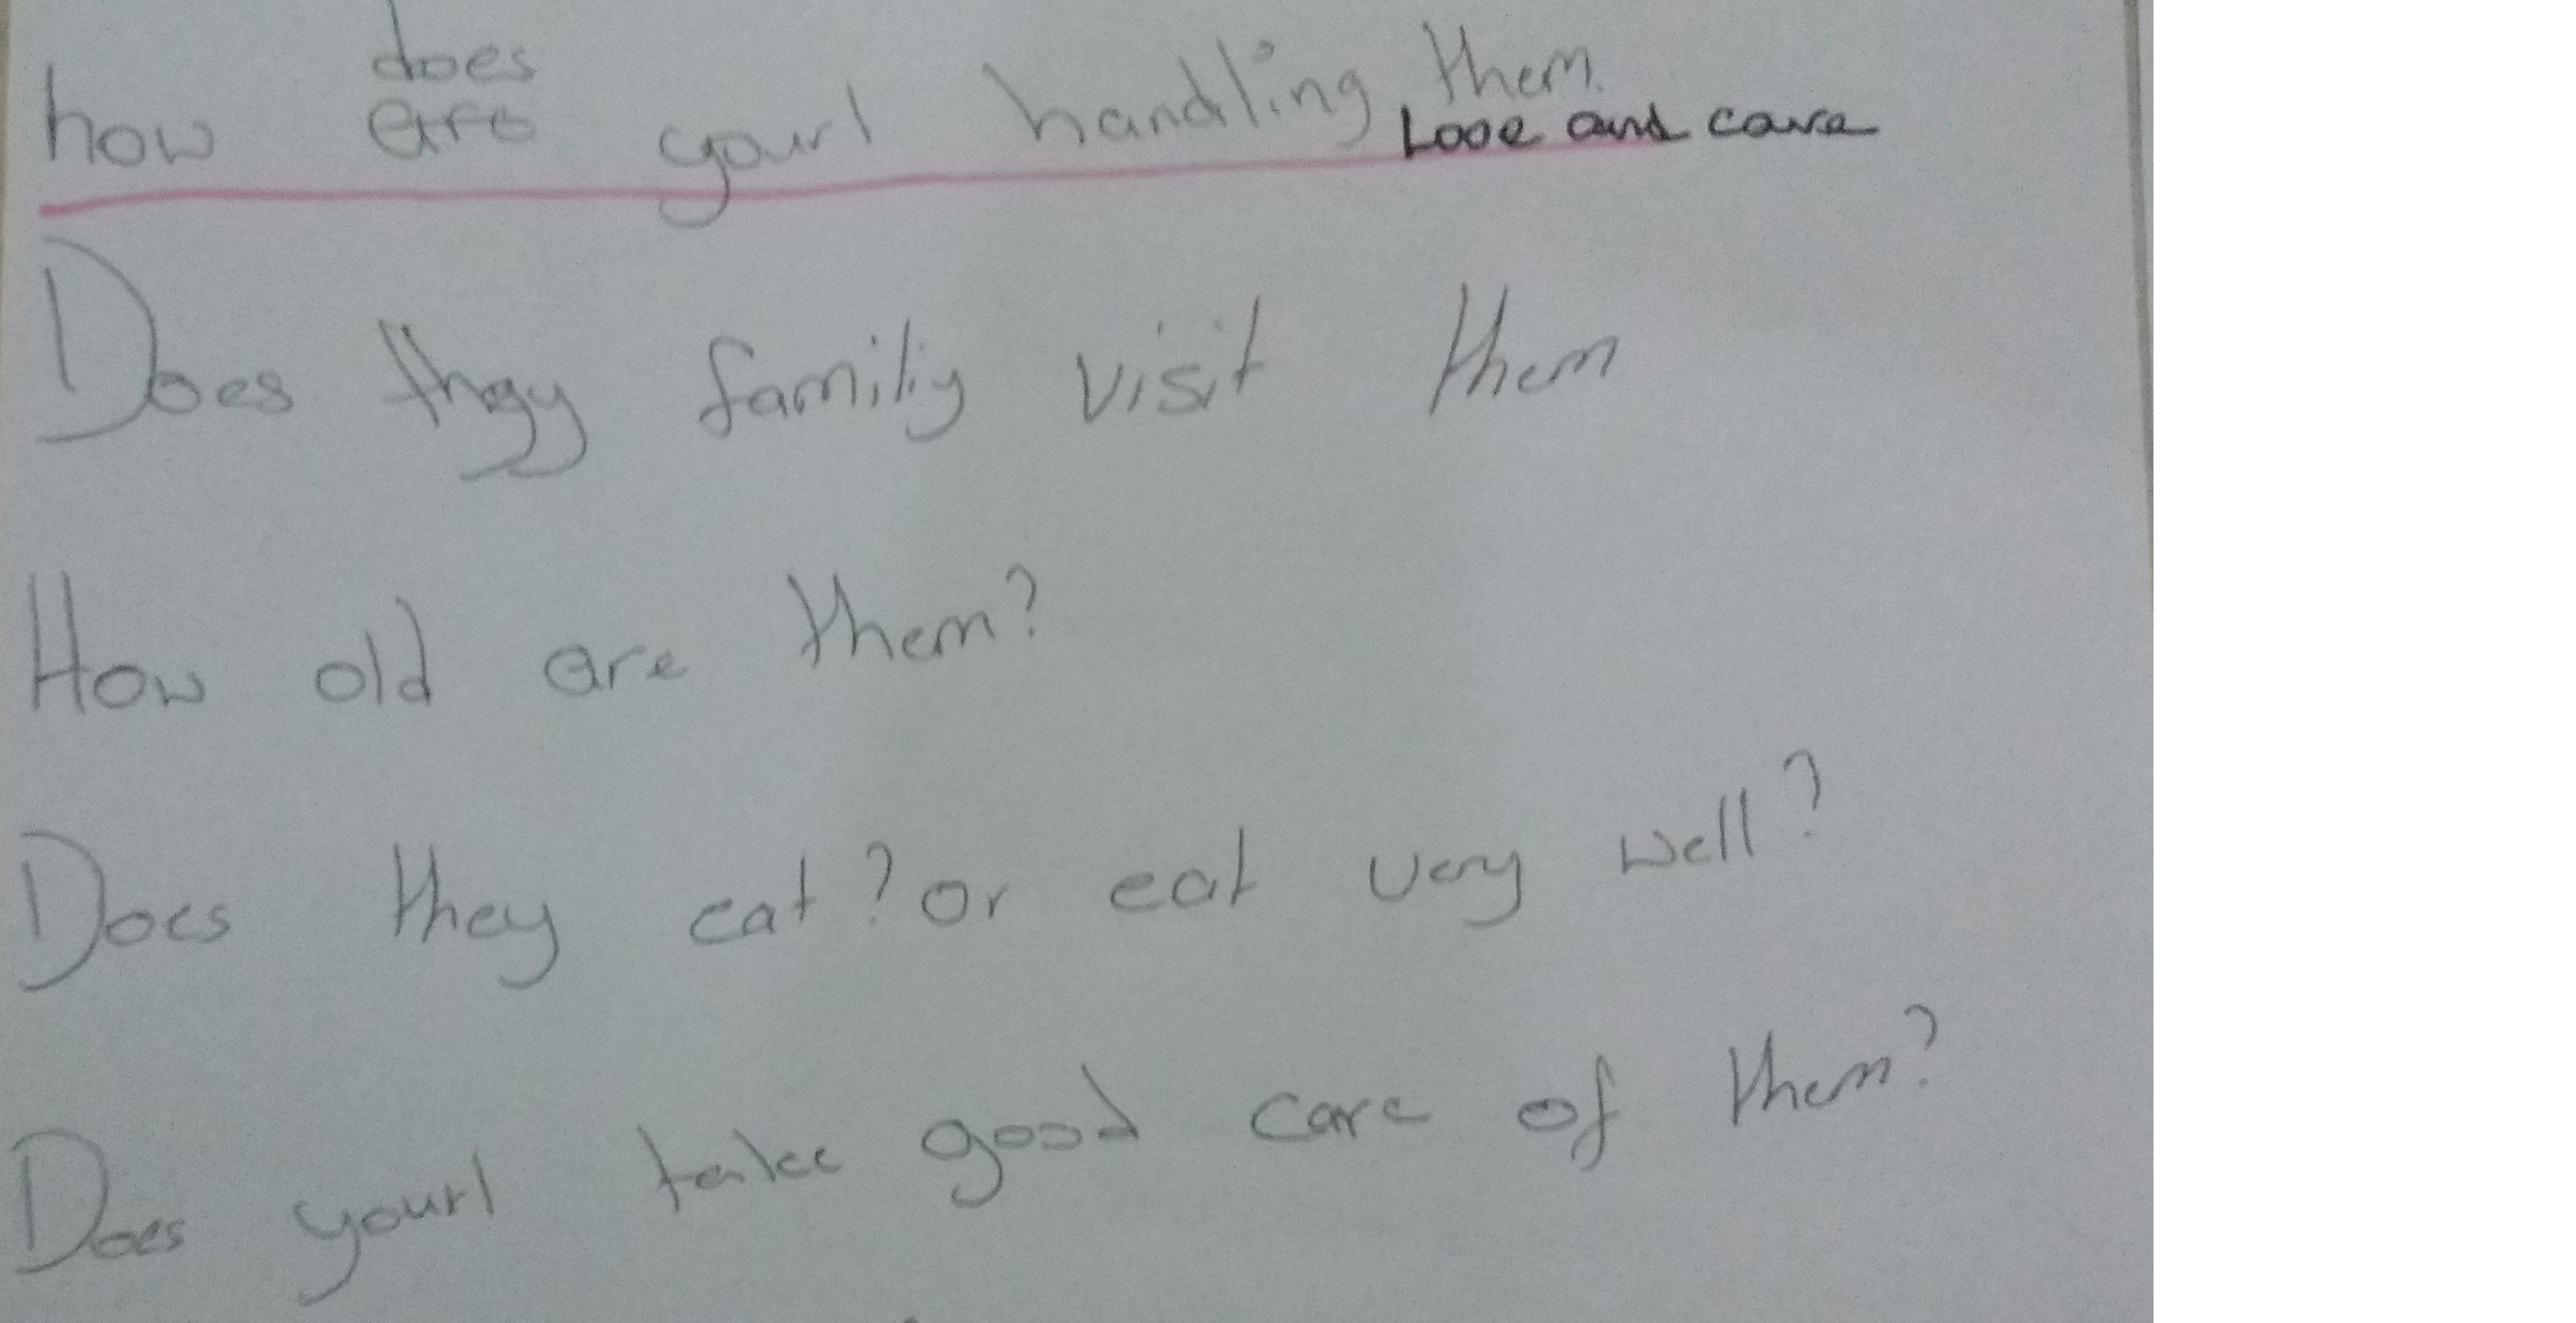 does
how are yourl handling them.
Looe and care
Does thegy familiy visit them
How old are them?
Does they eat? or eat very well?
Does yourl take good care of them?